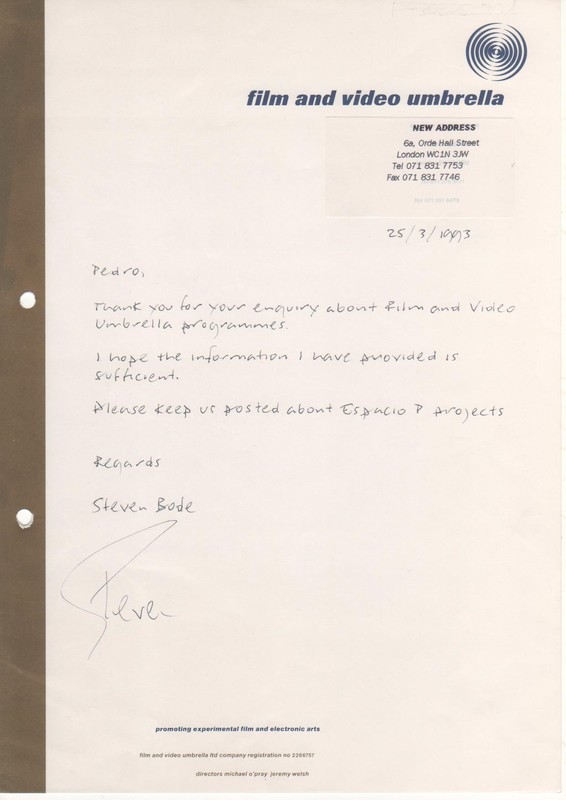 film and video umbrella
NEW ADDRESS
6a, Orde Hall Street
London WC1N 3JW
Tel 071 831 7753
Fax 071 831 7746
25/3/1993
Pedro,
Thank you for your enquiry about Film and Video
Umbrella programmes.
I hope the information I have provided is
sufficient.
Please keep us posted about Espacio P projects
Regards
Steven Bode
Steven
promoting experimental film and electronic arts
film and video umbrella ltd company registration no 2266757
directors michael o'pray jeremy welsh